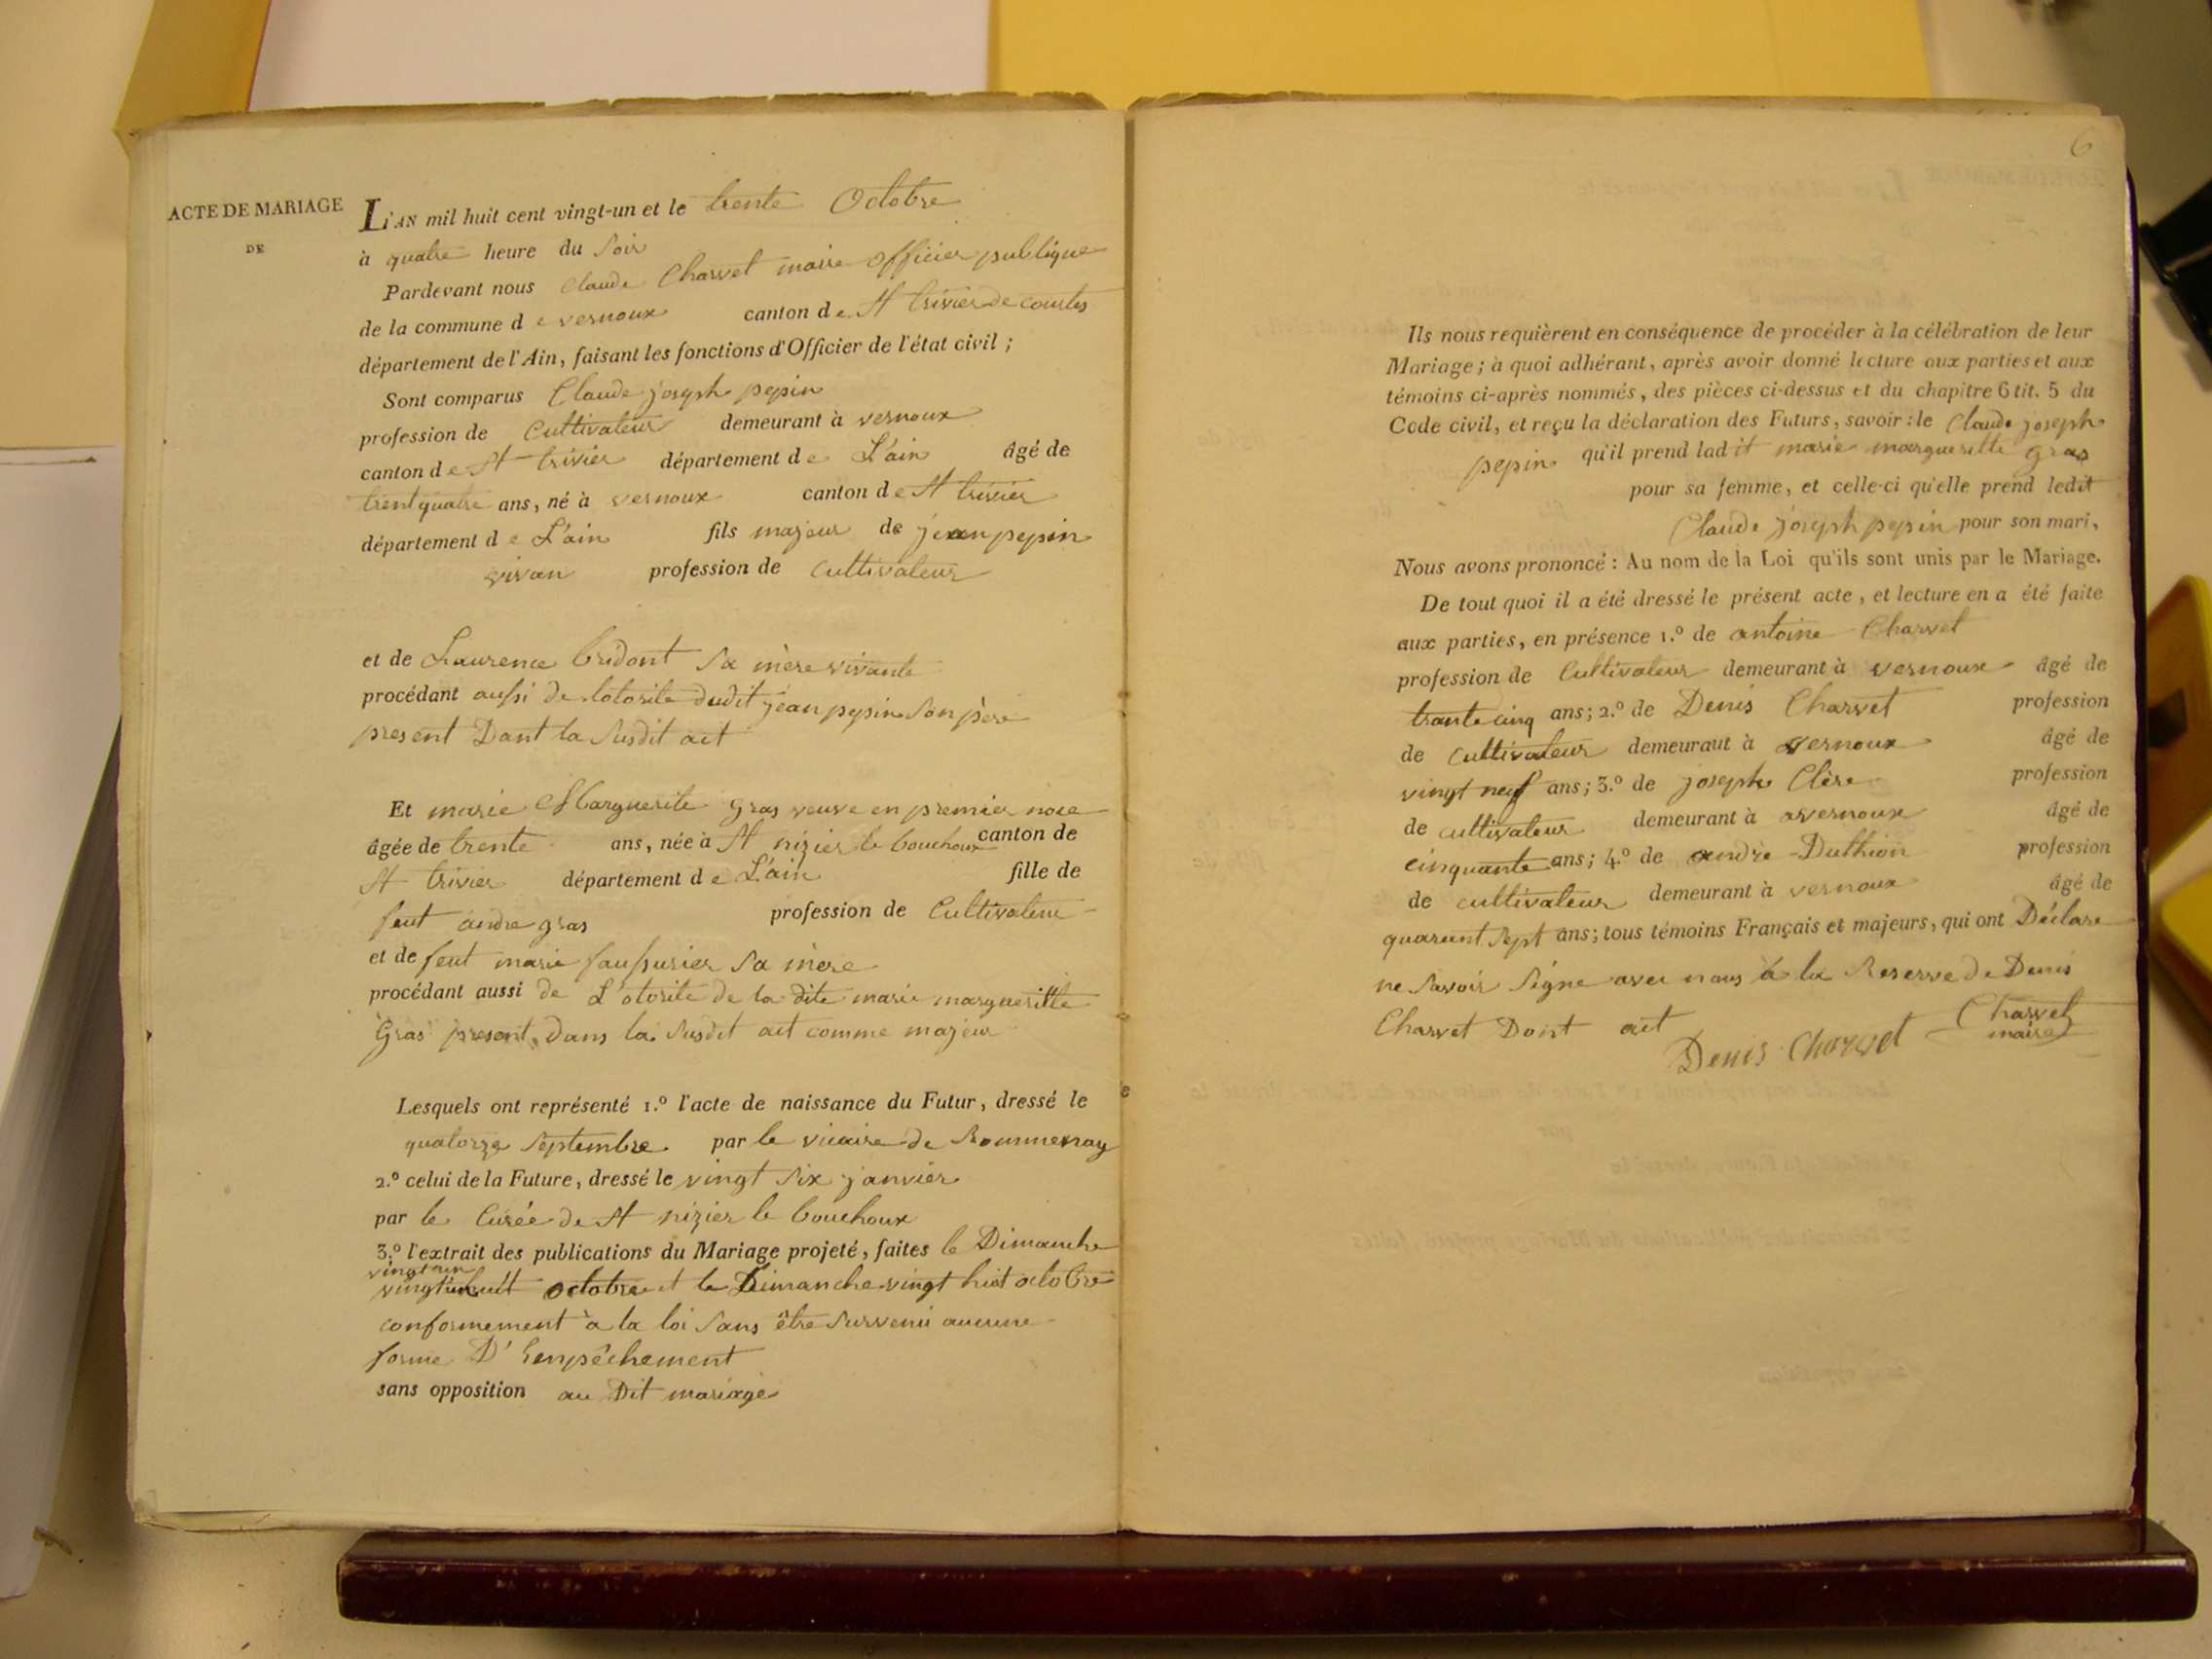 ACTE DE MARIAGE
DE
L'AN mil huit cent vingt-un et le trente Octobre
à quatre heure du soir
Pardevant nous Claude Charvet maire officier publique
de la commune de vernoux canton de St trivier de courtes
département de l'Ain, faisant les fonctions d'Officier de l'état civil ;
Sont comparus Claude joseph pepin
profession de Cultivateur demeurant à vernoux
canton de St trivier département de L'ain âgé de
trent quatre ans, né à vernoux canton de St trivier
département de L'ain fils majeur de jean pepin
vivan profession de Cultivateur
et de Laurence bridont sa mère vivante
procédant aussi de lotorite dudit jean pepin son père
present Dant la susdit act
Et marie Marguerite gras veuve en premier noce
âgée de trente ans, née à St nizier le bouchoux canton de
St trivier département de L'ain fille de
feut andre gras profession de Cultivateur
et de feut marie sa mère
procédant aussi de L'otorite de la dite marie margueritte
Gras present Dans la susdit act comme majeur
Lesquels ont représenté 1.º l'acte de naissance du Futur, dressé le
quatorze Septembre par le vicaire de Rommenay
2.º celui de la Future, dressé le vingt six janvier
par le Curée de St nizier le bouchoux
3.º l'extrait des publications du Mariage projeté, faites le Dimanche
vingt un
octobre et le Dimanche vingt huit octobre
conformement à la loi sans être survenu aucune
forme D'henpêchement
sans opposition au Dit mariage
6
Ils nous requièrent en conséquence de procéder à la célébration de leur
Mariage ; à quoi adhérant, après avoir donné lecture aux parties et aux
témoins ci-après nommés, des pièces ci-dessus et du chapitre 6 tit. 5 du
Code civil, et reçu la déclaration des Futurs, savoir : le Claude joseph
pepin qu'il prend ladit marie margueritte gras
pour sa femme, et celle-ci qu'elle prend ledit
Claude joseph pepin pour son mari,
Nous avons prononcé : Au nom de la Loi qu'ils sont unis par le Mariage.
De tout quoi il a été dressé le présent acte, et lecture en a été faite
aux parties, en présence 1.º de antoine Charvet
profession de Cultivateur demeurant à vernoux âgé de
trante cinq ans ; 2.º de Denis Charvet profession
de Cultivateur demeurant à vernoux âgé de
vingt neuf ans ; 3.º de joseph Clère profession
de cultivateur demeurant à avernoux âgé de
cinquante ans ; 4.º de andre Duthion profession
de cultivateur demeurant à vernoux âgé de
quarent sept ans ; tous témoins Français et majeurs, qui ont Déclare
ne savoir signe avec nous à la Reserve de Denis
Charvet Dont act
Denis Charvet
Charvet
maire